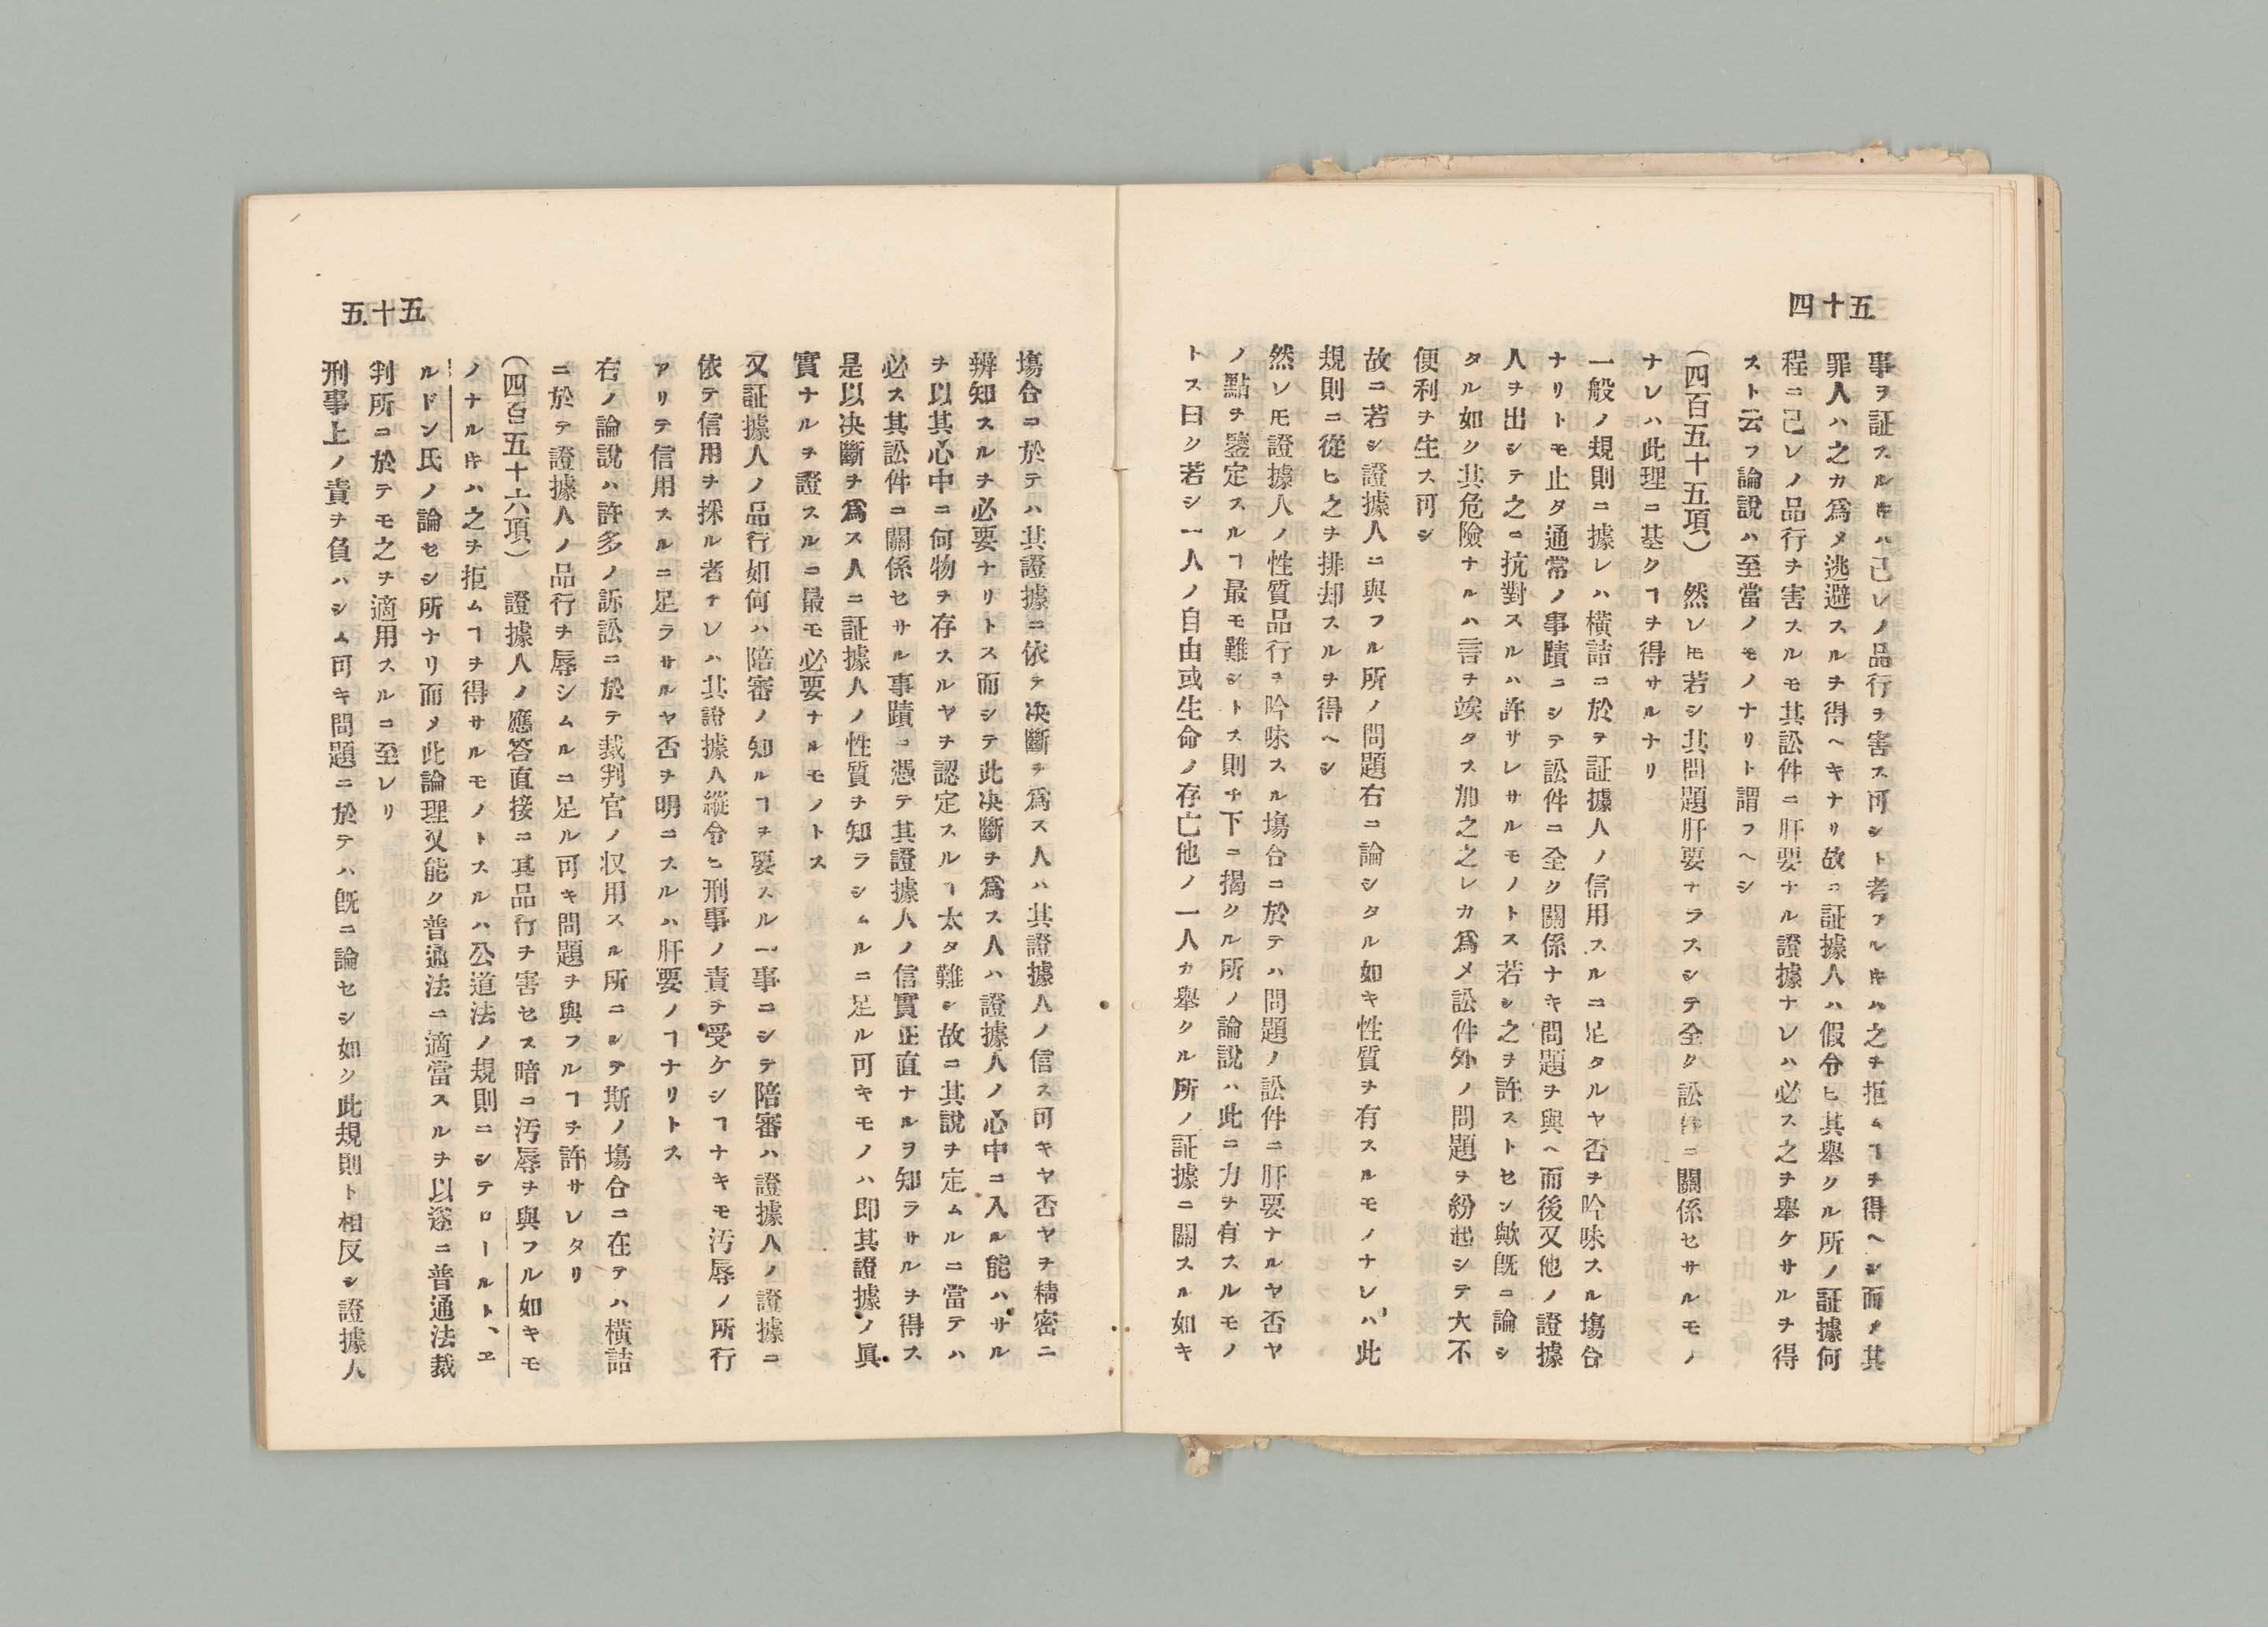 五十四
事ヲ証スルキハ己レノ品行ヲ害ス可シト考フルキハ之ヲ拒ムヿヲ得ヘシ而メ其
罪人ハ之カ爲メ逃避スルヲ得ヘキナリ故ニ証據人ハ假令ヒ其舉クル所ノ証據何
程ニ己レノ品行ヲ害スルモ其訟件ニ肝要ナル證據ナレハ必ス之ヲ舉ケサルヲ得
スト云フ論說ハ至當ノモノナリト謂フヘシ
(四百五十五項) 然レ𪜈若シ其問題肝要ナラスシテ全ク訟件ニ關係セサルモノ
ナレハ此理ニ基クヿヲ得サルナリ
一般ノ規則ニ據レハ橫詰ニ於テ証據人ノ信用スルニ足タルヤ否ヲ吟味スル塲合
ナリトモ止タ通常ノ事蹟ニシテ訟件ニ全ク關係ナキ問題ヲ與ヘ而後又他ノ證據
人ヲ出シテ之ニ抗對スルハ許サレサルモノトス若シ之ヲ許ストセン歟旣ニ論シ
タル如ク其危險ナルハ言ヲ竢タス加之之レカ爲メ訟件外ノ問題ヲ紛起シテ大不
便利ヲ生ス可シ
故ニ若シ證據人ニ與フル所ノ問題右ニ論シタル如キ性質ヲ有スルモノナレハ此
規則ニ從ヒ之ヲ排却スルヲ得ヘシ
然レ𪜈證據人ノ性質品行ヲ吟味スル塲合ニ於テハ問題ノ訟件ニ肝要ナルヤ否ヤ
ノ點ヲ鑒定スルヿ最モ難シトス則チ下ニ揭クル所ノ論說ハ此ニ力ヲ有スルモノ
トス曰ク若シ一人ノ自由或生命ノ存亡他ノ一人カ舉クル所ノ証據ニ關スル如キ
五十五
塲合ニ於テハ其證據ニ依テ决斷ヲ爲ス人ハ其證據人ノ信ス可キヤ否ヤヲ精密ニ
辨知スルヲ必要ナリトス而シテ此决斷ヲ爲ス人ハ證據人ノ心中ニ入ル能ハサル
ヲ以其心中ニ何物ヲ存スルヤヲ認定スルヿ太タ難シ故ニ其說ヲ定ムルニ當テハ
必ス其訟件ニ關係セサル事蹟ニ憑テ其證據人ノ信實正直ナルヲ知ラサルヲ得ス
是以决斷ヲ爲ス人ニ証據人ノ性質ヲ知ラシムルニ足ル可キモノハ即其證據ノ眞
實ナルヲ證スルニ最モ必要ナルモノトス
又証據人ノ品行如何ハ陪審ノ知ルヿヲ要スル一事ニシテ陪審ハ證據人ノ證據ニ
依テ信用ヲ採ル者ナレハ其證據人縱令ヒ刑事ノ責ヲ受ケシヿナキモ汚辱ノ所行
アリテ信用スルニ足ラサルヤ否ヲ明ニスルハ肝要ノヿナリトス
右ノ論說ハ許多ノ訴訟ニ於テ裁判官ノ収用スル所ニシテ斯ノ塲合ニ在テハ橫詰
ニ於テ證據人ノ品行ヲ辱シムルニ足ル可キ問題ヲ與フルヿヲ許サレタリ
(四百五十六項) 證據人ノ應答直接ニ其品行ヲ害セス暗ニ汚辱ヲ與フル如キモ
ノナルキハ之ヲ拒ムヿヲ得サルモノトスルハ公道法ノ規則ニシテロールト、ヱ
ルドン氏ノ論セシ所ナリ而メ此論理又能ク普通法ニ適當スルヲ以遂ニ普通法裁
判所ニ於テモ之ヲ適用スルニ至レリ
刑事上ノ責ヲ負ハシム可キ問題ニ於テハ旣ニ論セシ如ク此規則ト相反シ證據人